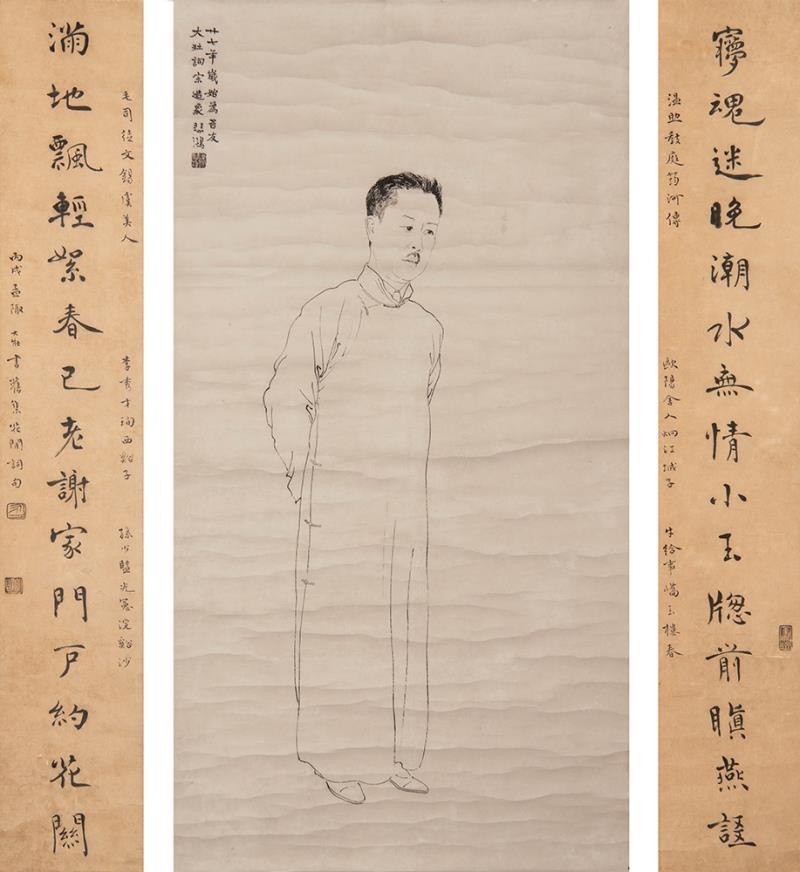 㝱魂迷晚潮水無情小玉牕前瞋燕語
温助教庭筠河傳
歐陽舍人炯江城子
牛給事嶠玉樓春
廿七年歲始為吾友
大壯詞宗造象 悲鴻
滿地飄輕絮春已老謝家門戶約花關
毛司徒文錫虞美人
李秀才珣西谿子
孫少監光憲浣谿沙
丙戌孟陬 大壯書舊集花間詞句